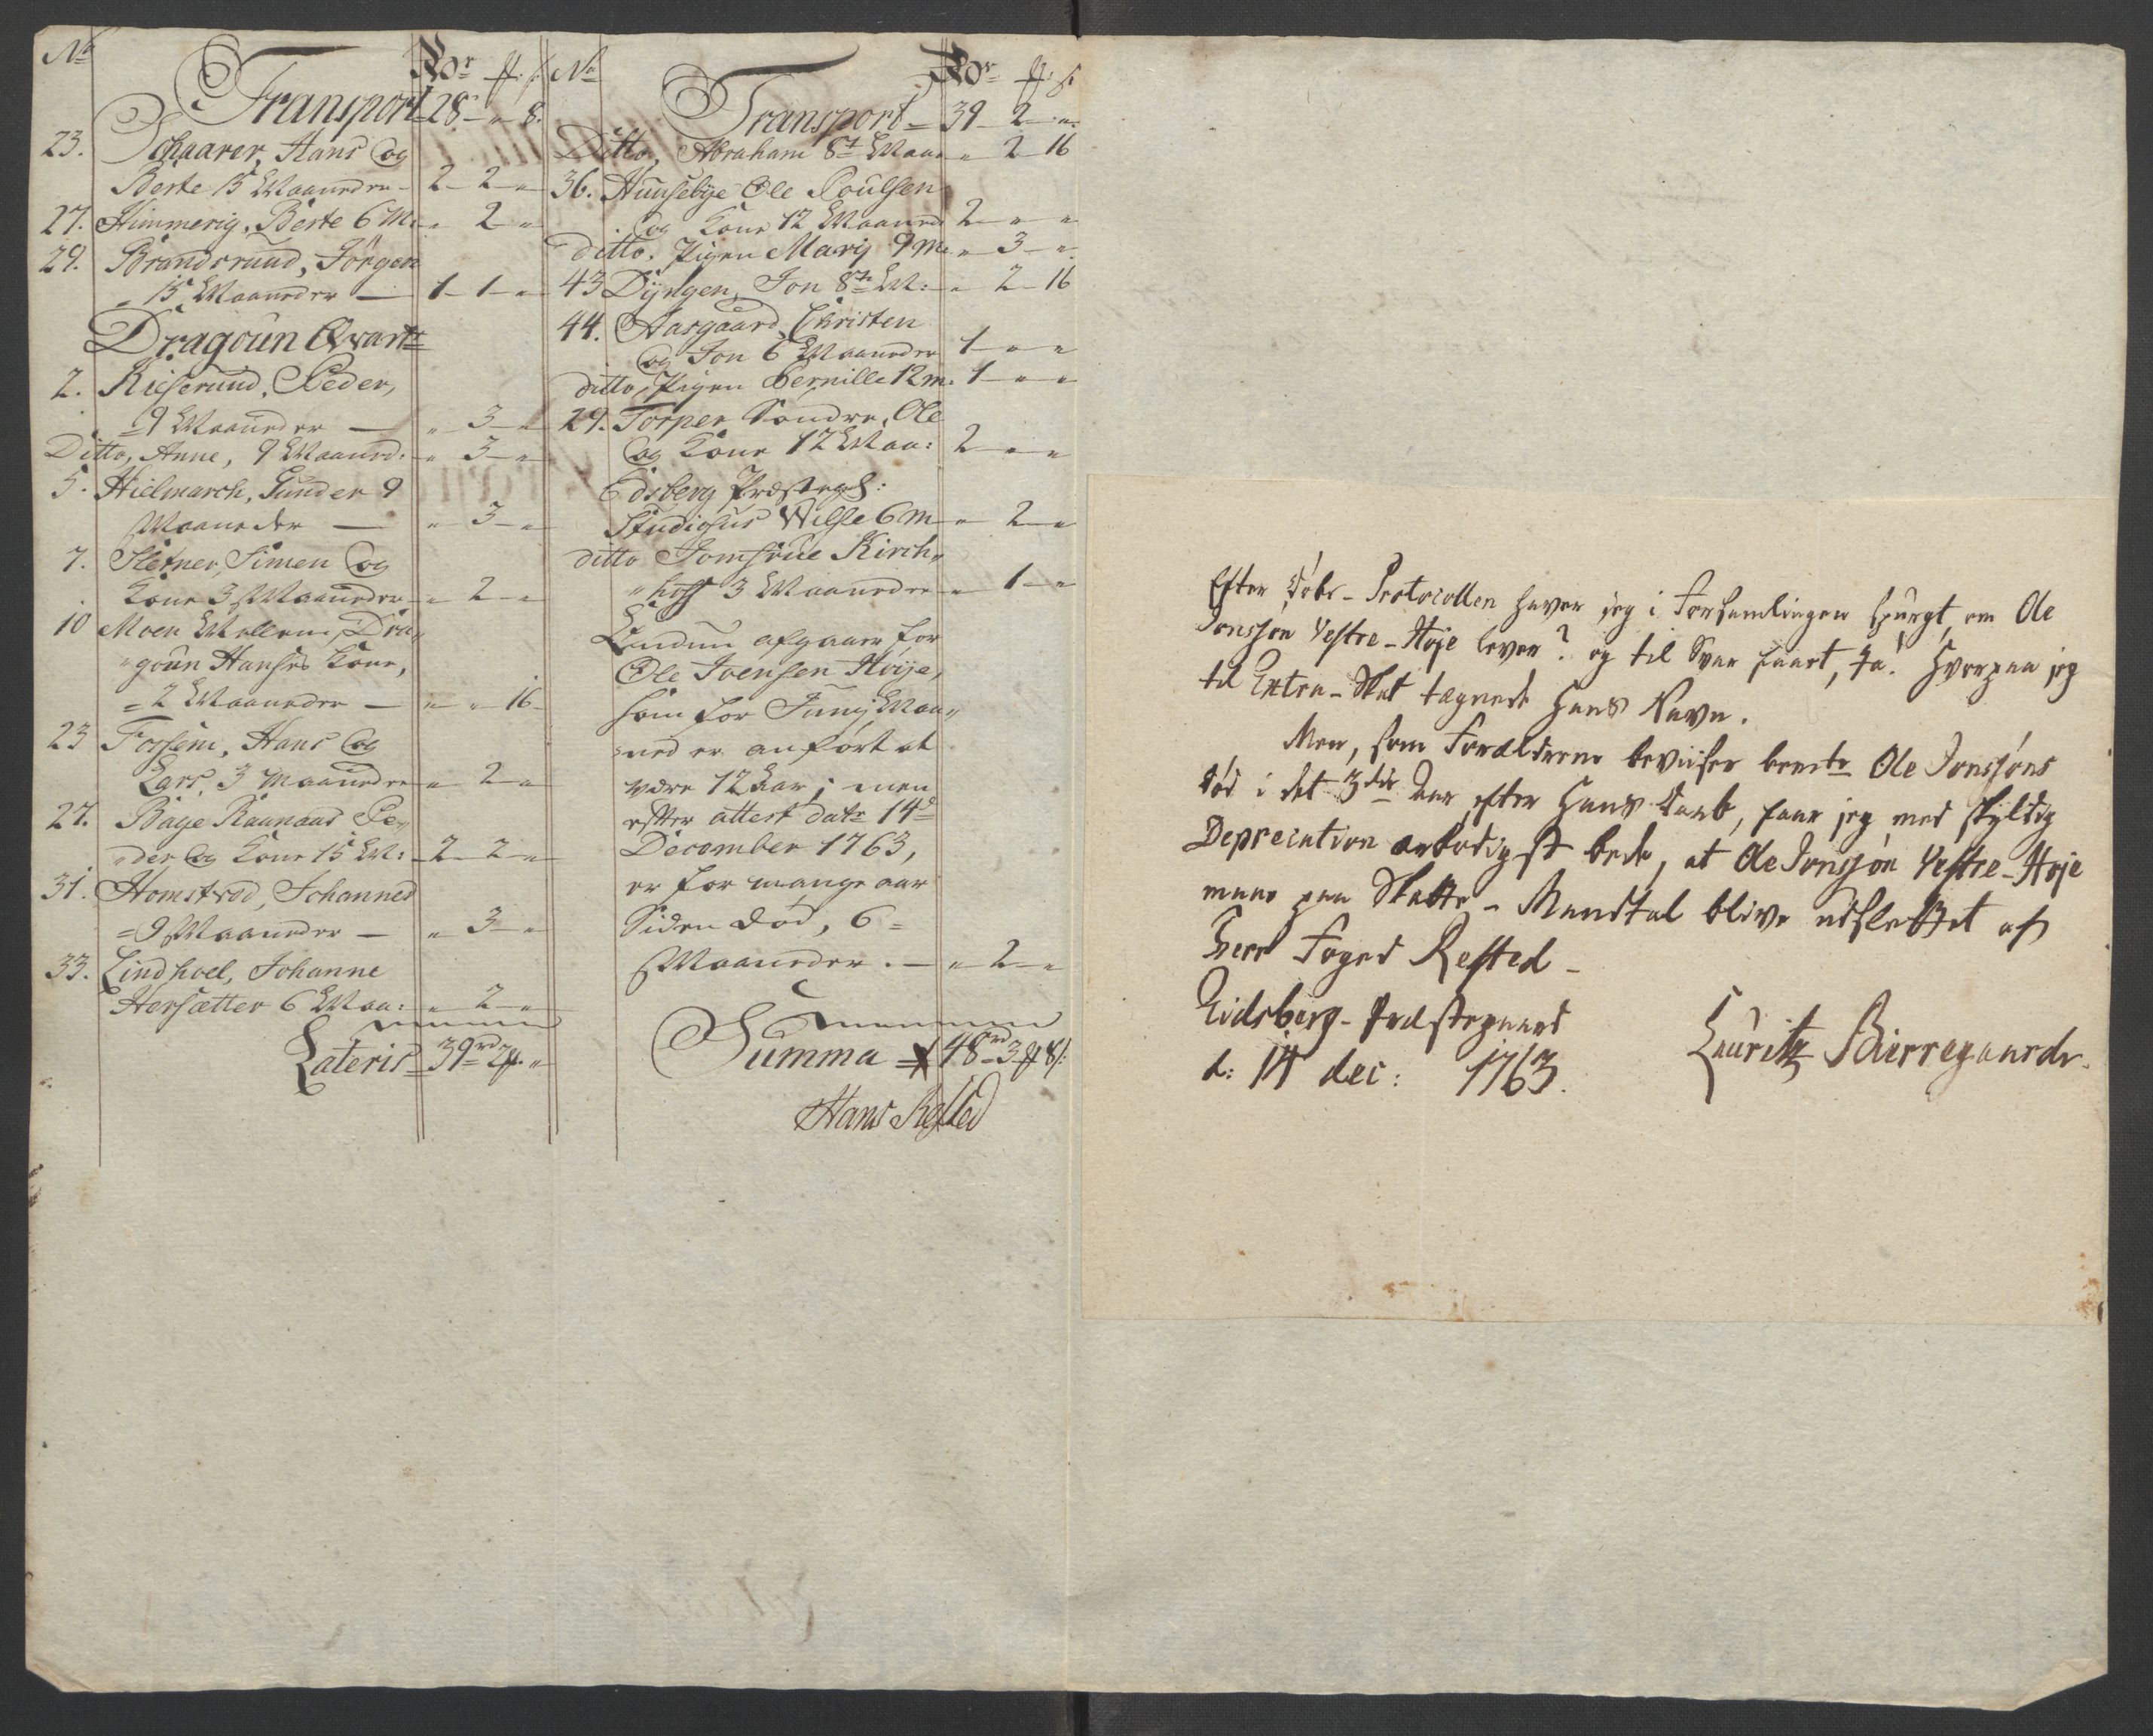 No Rdr ff. s.
Transport 28 - " - 8.
23. Schaarer, Hans og
Berte 15 Maaneder - 2 - 2 - "
27. Himmerig, Berte 6 M: " 2 - "
29. Brandsrund, Jörgen
" 15 Maaneder — 1 - 1 - "
Dragoun Qvart
2. Kicserund, Peder,
= 9 Maaneder — " 3 - "
Ditto, Anne, 9 Maaned: " 3 - "
5. Hielmarch, Gunder 9
Maaneder — " 3 - "
7. Sletner, Simen og
Kone 3 Maaneder " 2 - "
10 Moen Mellem, Dra„
„goun Hanses Kone,
= 2 Maaneder — " " 16
23 Fossem, Hans og
Lars, 3 Maaneder " 2 - "
27. Bage Raunaas Pe„
„der og Kone 15 M: 2 - 2 - "
31. Homstvod, Johannes
= 9 Maaneder — " 3 - "
33. Lindhoel, Johanne
Hersætter 6 Maa: " 2 - "
Lateris 39rd 2ff. "
No Rdr ff. s.
Transport - 39 - 2 - "
Ditto, Abraham 8te Maa " 2 - 16
36. Huusebye Ole Poulsen
og Kone 12 Maaned 2 - " - "
ditto. Pigen Marij 9 M. " 3 - "
43 Dyngen, Jon 8te M: " 2 - 16
44. Aasgaard, Christen
og Jon 6 Maaneder 1 - " - "
ditto, Pigen Pernille 12 m. 1 - " - "
29. Torper Søndre, Ole
og Kone 12 Maa: 2 - " - "
Edsberg Præsteg:
Studiosus Wilse 6 M " 2 - "
ditto Jomfrue Kirch„
„hoff 3 Maaneder " 1 - "
Endnu afgaaer for
Ole Joensen Høije,
som for Junij Maa„
„ned er anført at
være 12 Aar; men
efter attest datr 14de
December 1763,
er for mange aar
Siden død, 6 =
Maaneder. — " 2 - "
Summa 48rd 3 ff 8 s:
Hans Rested
Efter Døbe-Protocollen haver jeg i Forsamlingen spurgt, om Ole
Jonssøn Vestre-Høje lever? og til Svar faaet, Ja! hvorpaa jeg
til Extra-Skat tegnede hans Navn.
Men, som Forældrene beviiser bemte Ole Jonssøns
Død i det 3die Aar efter hans Daab, faar jeg med skyldig
Depreciation ærbødigst bede, at Ole Jonssøn Vestre-Høje
maae paa Skatte-Mandtal blive udslettet af
Herr Foged Rested -
Eidsberg-Præstegaard
d: 14 dec: 1763.
Lauritz Bierregaardr.